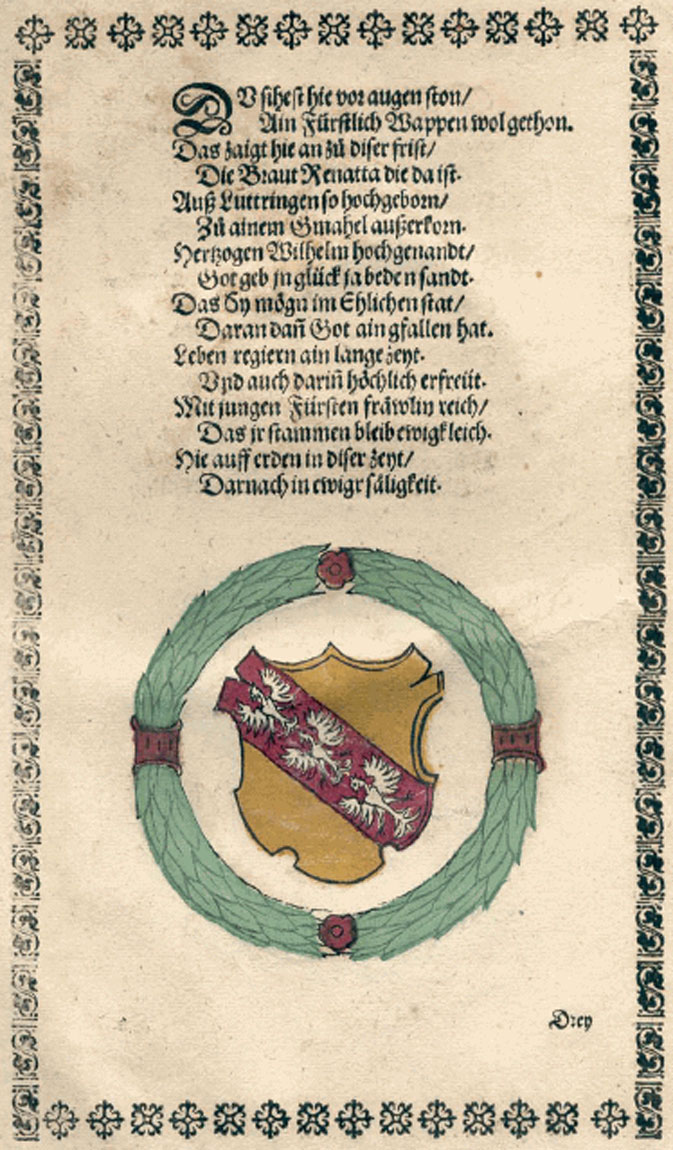 DV sihest hie vor augen ston/
Ain Fürstlich Wappen wol gethon.
Das zaigt hie an zů diser frist/
Die Braut Renatta die da ist.
Auß Luttringen so hochgeborn/
Zů ainem Gmahel außerkorn.
Hertzogen Wilhelm hochgenandt/
Got geb jn glück ja beden sandt.
Das Sy mögn im Ehlichen stat/
Daran dañ Got ain gfallen hat.
Leben regiern ain lange zeyt.
Vnd auch dariñ höchlich erfreüt.
Mit jungen Fürsten fräwlin reich/
Das jr stammen bleib ewigkleich.
Hie auff erden in diser zeyt/
Darnach in ewigr säligkeit.
Drey